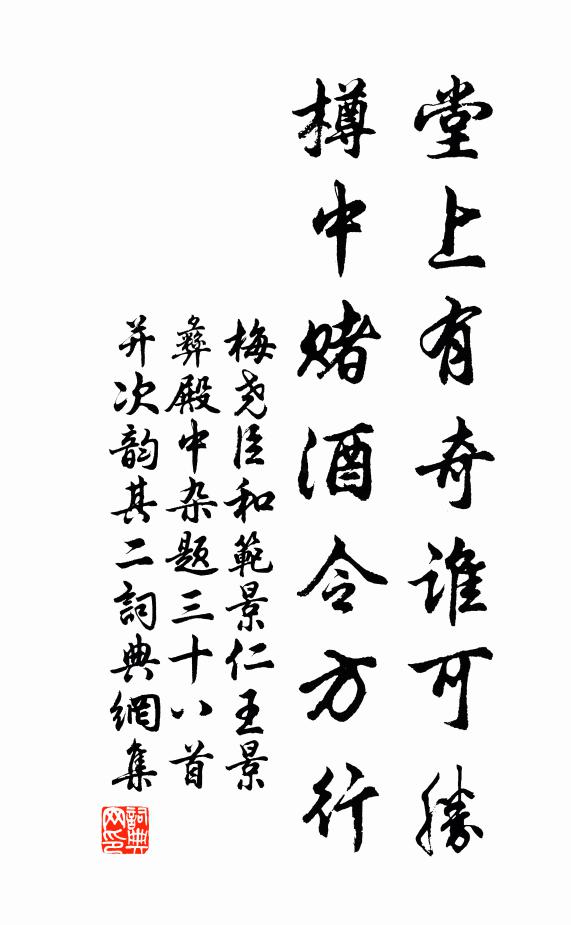 堂上有奇谁可勝
樽中赌酒令方行
梅尧臣和範景仁王景
彝殿中杂题三十八首
并次韵其二詞典網集
詞典网印